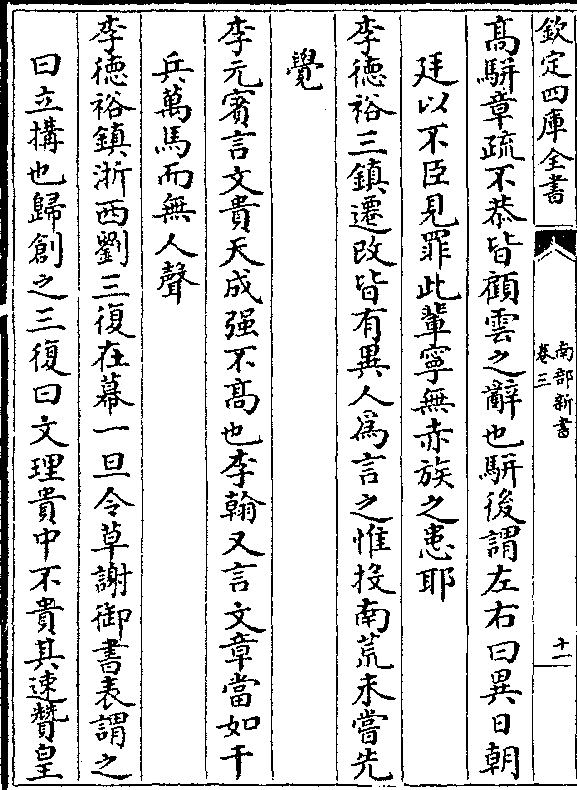 欽定四庫全書
南部新書
卷三
十一
高駢章疏不恭皆顧雲之辭也駢後謂左右曰異日朝
廷以不臣見罪此輩寧無赤族之患耶
李德裕三鎮遷改皆有異人為言之惟投南荒未嘗先
覺
李元賓言文貴天成强不高也李翰又言文章當如千
兵萬馬而無人聲
李德裕鎮浙西劉三復在幕一旦令草謝御書表謂之
曰立搆也歸創之三復曰文理貴中不貴其速贊皇